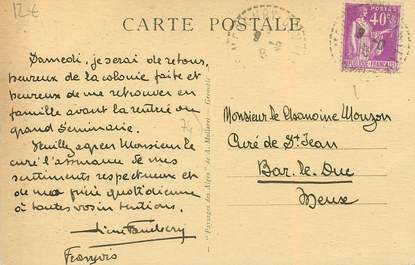 12€
CARTE POSTALE
40c
POSTES
REPUBLIQUE FRANÇAISE
Samedi, je serai de retour,
heureux de la colonie faite et
heureux de me retrouver en
famille avant la rentrée au
grand Séminaire.
Veuillez agréer Monsieur le
curé l'assurance de mes
sentiments respectueux et
de ma prière quotidienne
à toutes vos intentions.
François
"Paysages des Alpes" de A. Mollaret - Grenoble
Monsieur le Chanoine Mouzon
Curé de St Jean
Bar-le-Duc
Meuse